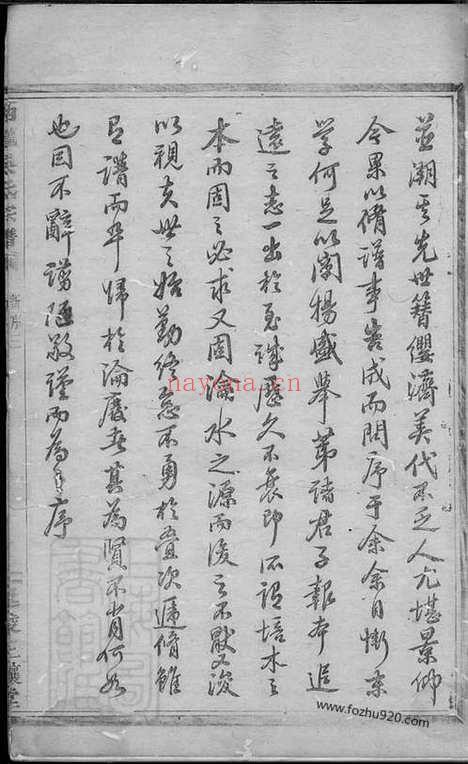 並溯其先世簪纓濟美代不乏人尤堪景仰
今果以脩譜事告成而問序于余余自慚末
學何足以闡揚盛舉第諸君子報本追
遠之志一出於至誠歷久不衰即所謂培木之
本而固之必求又固瀹水之源而浚之不厭又浚
以視夫世之始勤終怠不勇於
次遞脩雖
有譜而卒歸於淪廢者其為賢不肖何如
也因不辭譾陋敬謹而為之序
氏宗譜
堂
nayona.cn
www.fozhu920.com